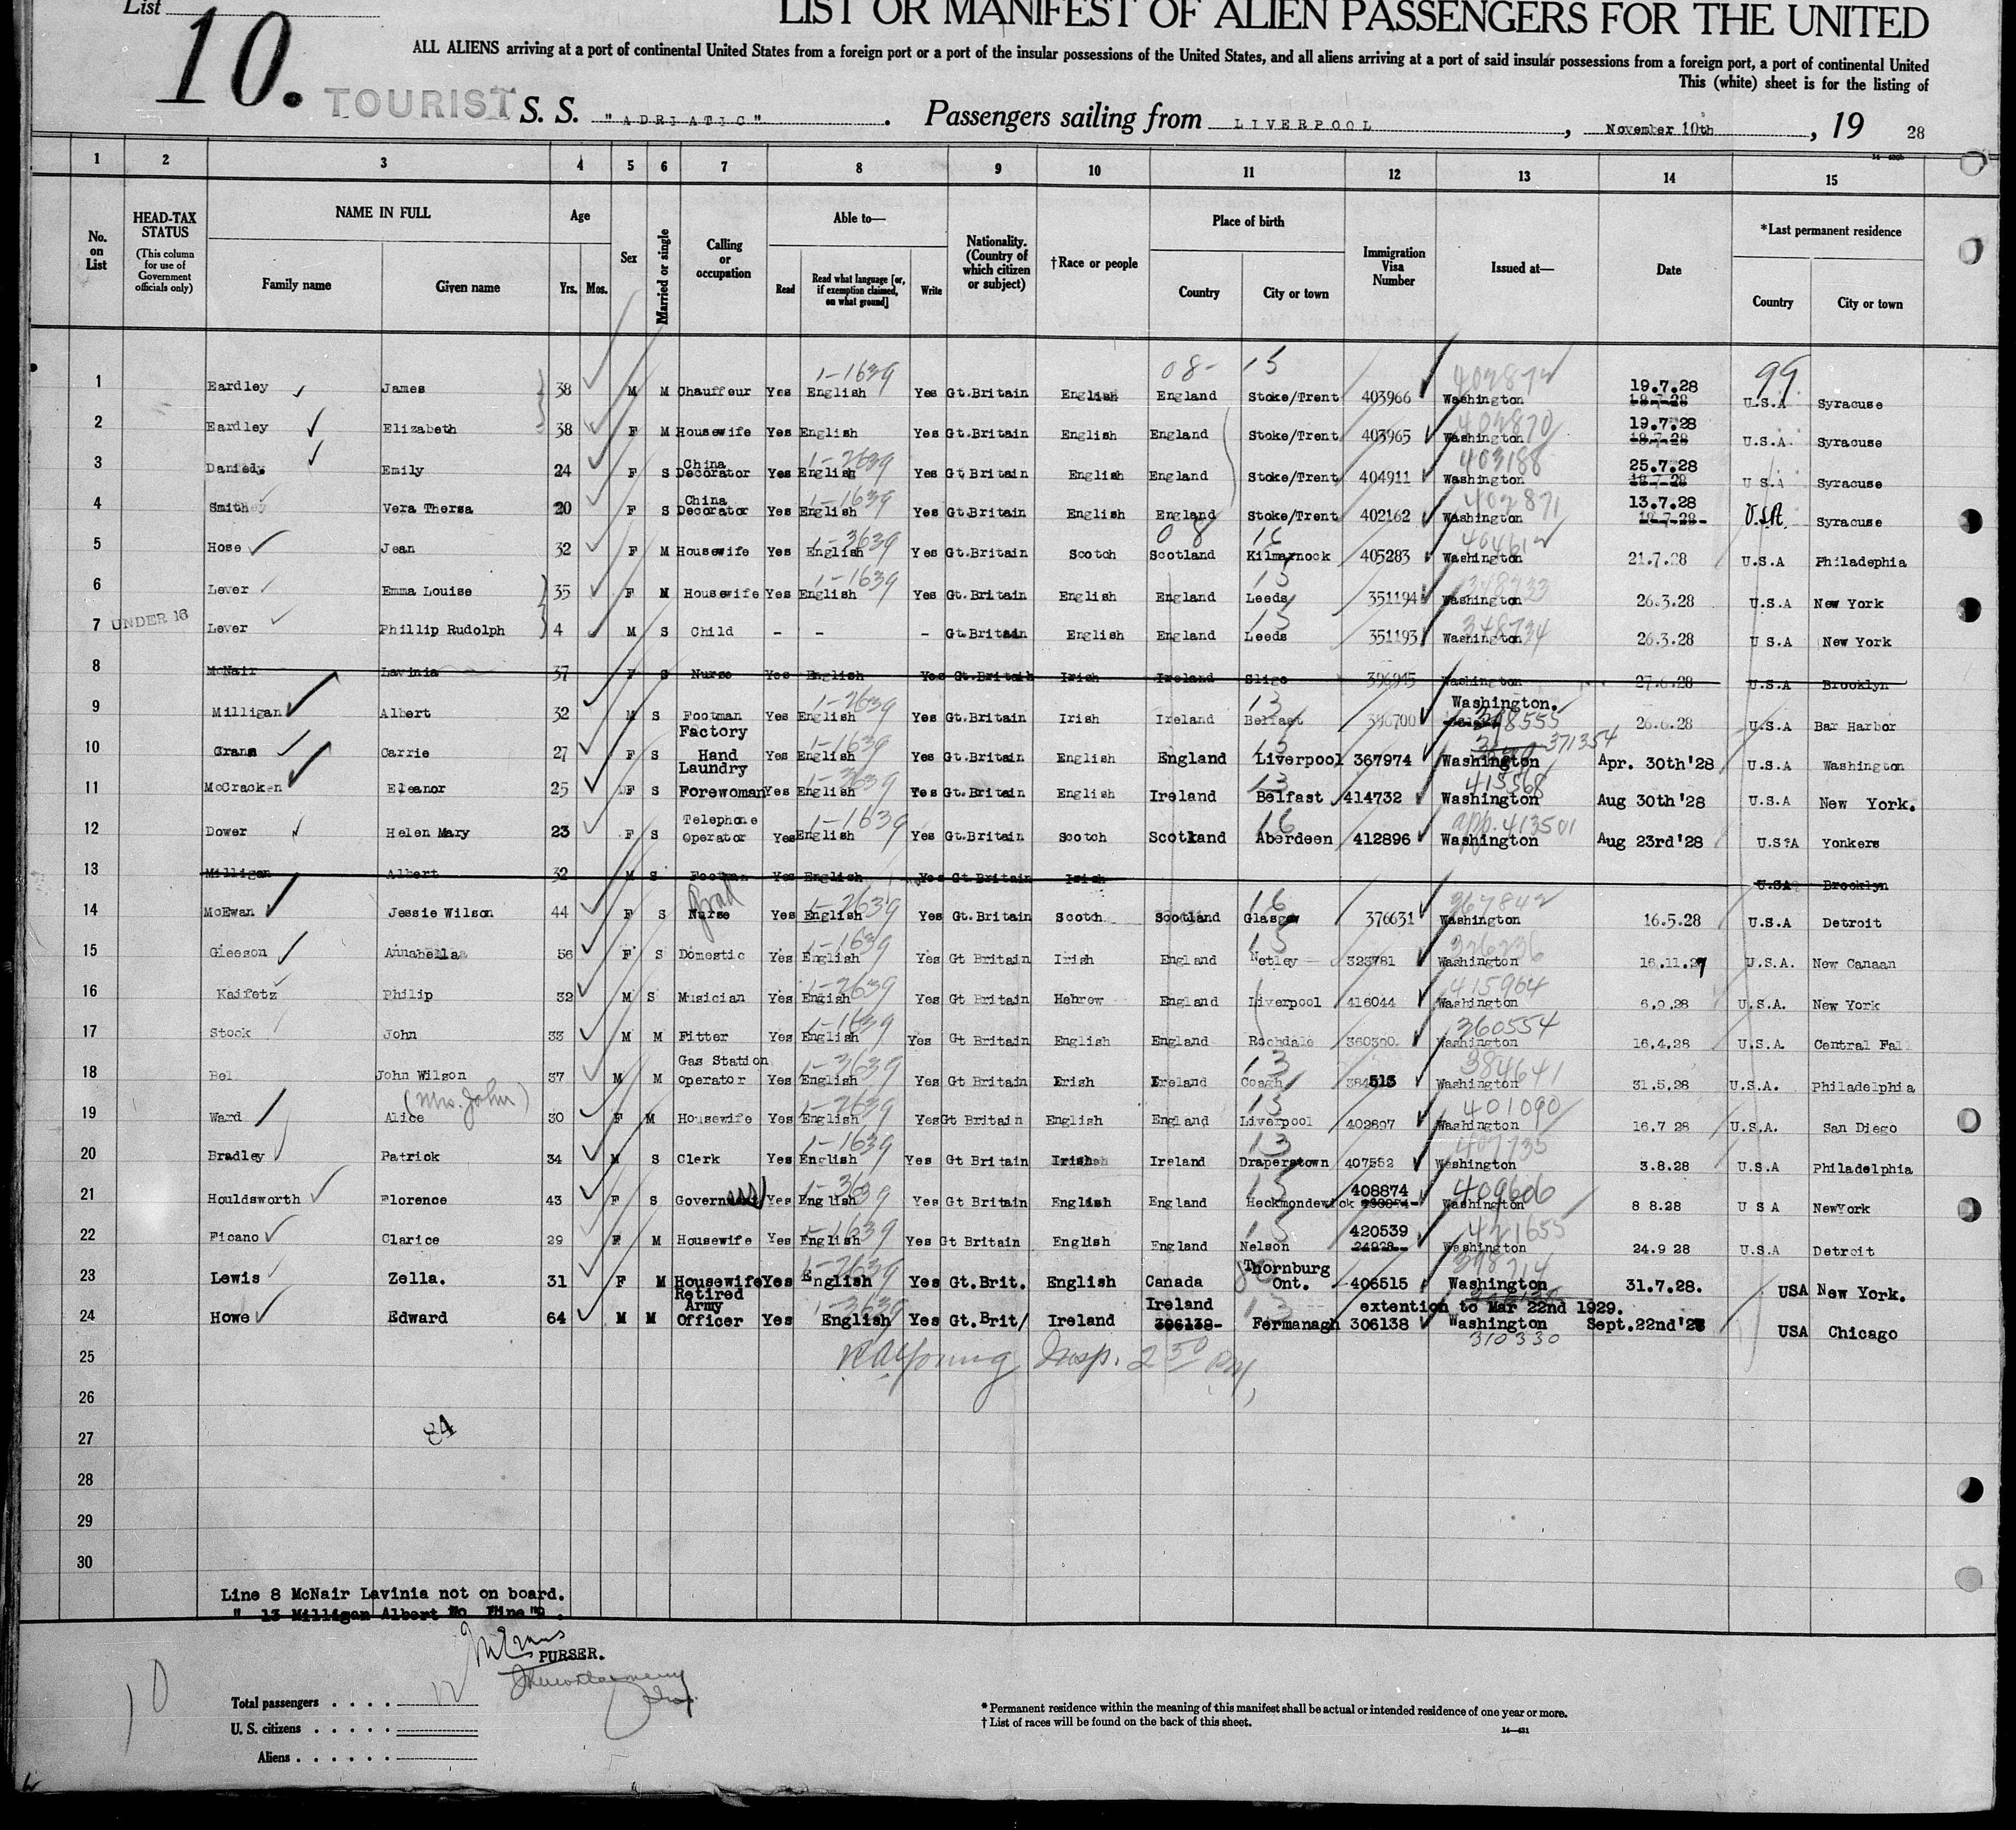 List
LIST OR MANIFEST OF ALIEN PASSENGERS FOR THE UNITED
10.
ALL ALIENS arriving at a port of continental United States from a foreign port or a port of the insular possessions of the United States, and all aliens arriving at a port of said insular possessions from a foreign port, a port of continental United
This (white) sheet is for the listing of
TOURIST S. S. "ADRIATIC". Passengers sailing from LIVERPOOL, November 10th, 19 28
1 2 3 4 5 6 7 8 9 10 11 12 13 14 15
No. on List
HEAD-TAX STATUS (This column for use of Government officials only)
NAME IN FULL Family name Given name
Age Yrs. Mos.
Sex
Married or single
Calling or occupation
Able to— Read Read what language [or, if exemption claimed, on what ground] Write
Nationality. (Country of which citizen or subject)
†Race or people
Place of birth Country City or town
Immigration Visa Number
Issued at—
Date
*Last permanent residence Country City or town
1 Eardley James 38 M M Chauffeur Yes English 1-1639 Yes Gt.Britain English 08- England 15 Stoke/Trent 403966 402872 Washington 19.7.28 18.7.28 99 U.S.A Syracuse
2 Eardley Elizabeth 38 F M Housewife Yes English Yes Gt.Britain English England Stoke/Trent 403965 402870 Washington 19.7.28 18.7.28 U.S.A. Syracuse
3 Emily 24 F S China Decorator Yes English 1-2639 Yes Gt.Britain English England Stoke/Trent 404911 403188 Washington 25.7.28 18.7.28 U S.A Syracuse
4 Smith Vera Thersa 20 F S China Decorator Yes English 1-1639 Yes Gt.Britain English England Stoke/Trent 402162 402871 Washington 13.7.28 18.7.28- U.S.A. Syracuse
5 Hose Jean 32 F M Housewife Yes English 1-3639 Yes Gt.Britain Scotch 08 Scotland 16 Kilmarnock 405283 Washington 21.7.28 U.S.A Philadephia
6 Lever Emma Louise 35 F M Housewife Yes English 1-1639 Yes Gt.Britain English England 15 Leeds 351194 348733 Washington 26.3.28 U.S.A New York
7 UNDER 16 Lever Phillip Rudolph 4 M S Child - - - Gt.Britain English England 15 Leeds 351193 348734 Washington 26.3.28 U S.A New York
8 McNair Lavinia 37 F S Nurse Yes English Yes Gt.Britain Irish Ireland Sligo 396945 Washington 27.6.28 U.S.A Brooklyn
9 Milligan Albert 32 M S Footman Yes English 1-2639 Yes Gt.Britain Irish Ireland 13 Belfast 396700 Washington. 26.6.28 U.S.A Bar Harbor
10 Carrie 27 F S Factory Hand Yes English 1-1639 Yes Gt.Britain English England 15 Liverpool 367974 371354 Washington Apr. 30th'28 U.S.A Washington
11 McCracken Eleanor 25 F S Laundry Forewoman Yes English 1-3639 Yes Gt.Britain English Ireland 13 Belfast 414732 415568 Washington Aug 30th'28 U.S.A New York.
12 Dower Helen Mary 23 F S Telephone Operator Yes English 1-1639 Yes Gt.Britain Scotch Scotland 16 Aberdeen 412896 app. 413501 Washington Aug 23rd'28 U.S?A Yonkers
13 Milligan Albert 32 M S Footman Yes English Yes Gt.Britain Irish U.SA Brooklyn
14 McEwan Jessie Wilson 44 F S Grad Nurse Yes English 1-2639 Yes Gt.Britain Scotch Scotland 16 Glasgow 376631 367842 Washington 16.5.28 U.S.A Detroit
15 Gleeson Annabella 56 F S Domestic Yes English 1-1639 Yes Gt Britain Irish England 15 Netley 323781 326236 Washington 16.11.27 U.S.A. New Canaan
16 Kaifetz Philip 32 M S Musician Yes Engish 1-2639 Yes Gt Britain Hebrew England Liverpool 416044 415964 Washington 6.9.28 U.S.A. New York
17 Stock John 33 M M Fitter Yes English 1-1639 Yes Gt Britain English England Rochdale 360390 360554 Washington 16.4.28 U.S.A. Central Fall
18 Bel John Wilson 37 M M Gas Station operator Yes English 1-3639 Yes Gt Britain Irish Ireland 13 Coagh 384513 384641 Washington 31.5.28 U.S.A. Philadelphia
19 Ward (Mrs. John) Alice 30 F M Housewife Yes English 1-2639 Yes Gt Britain English England 15 Liverpool 402897 401090 Washington 16.7 28 U.S.A. San Diego
20 Bradley Patrick 34 M S Clerk Yes English 1-1639 Yes Gt Britain Irish Ireland 13 Draperstown 407552 407735 Washington 3.8.28 U.S.A Philadelphia
21 Houldsworth Florence 43 F S Yes English 1-3639 Yes Gt Britain English England 15 Heckmondewick 408874 409606 Washington 8 8.28 U S A NewYork
22 Ficano Clarice 29 F M Housewife Yes English 1-1639 Yes Gt Britain English England 15 Nelson 420539 421655 Washington 24.9 28 U.S.A Detroit
23 Lewis Zella. 31 F M Housewife Yes English 1-2639 Yes Gt.Brit. English Canada Thornburg Ont. 406515 398714 Washington 31.7.28. USA New York.
24 Howe Edward 64 M M Retired Army Officer Yes English 1-3639 Yes Gt.Brit/ Ireland Ireland 306138- 13 Fermanagh 306138 extention to Mar 22nd 1929. Washington 310330 Sept.22nd'28 USA Chicago
25 Insp. 2 30 PM
26
27 84
28
29
30
Line 8 McNair Lavinia not on board.
" 13 Milligan Albert To line "9.
PURSER.
10
Total passengers . . . .
U. S. citizens . . . . .
Aliens . . . . . .
* Permanent residence within the meaning of this manifest shall be actual or intended residence of one year or more.
† List of races will be found on the back of this sheet.
14—431